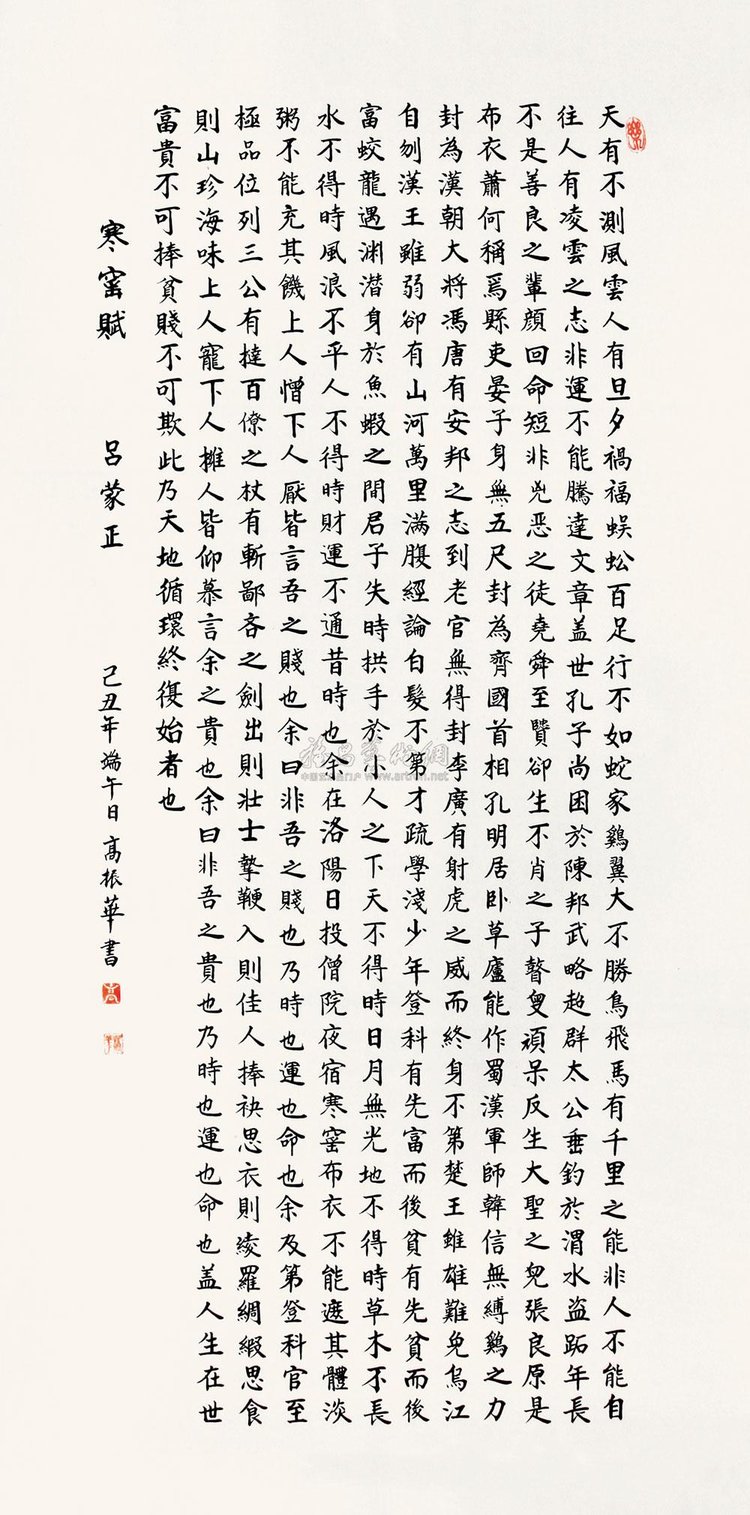 天有不測風雲人有旦夕禍福蜈蚣百足行不如蛇家鷄翼大不勝鳥飛馬有千里之能非人不能自
往人有凌雲之志非運不能騰達文章盖世孔子尚困於陳邦武略超群太公垂釣於渭水盜跖年長
不是善良之輩顔回命短非兇惡之徒堯舜至賢卻生不肖之子瞽叟頑呆反生大聖之兒張良原是
布衣蕭何稱焉縣吏晏子身無五尺封為齊國首相孔明居卧草廬能作蜀漢軍師韓信無縛鷄之力
封為漢朝大將馮唐有安邦之志到老官無得封李廣有射虎之威而終身不第楚王雖雄難免烏江
自刎漢王雖弱卻有山河萬里滿腹經論白髮不第才疏學淺少年登科有先富而後貧有先貧而後
富蛟龍遇渊潜身於魚蝦之間君子失時拱手於小人之下天不得時日月無光地不得時草木不長
水不得時風浪不平人不得時財運不通昔時也余在洛陽日投僧院夜宿寒窑布衣不能遮其體淡
粥不能充其饑上人憎下人厭皆言吾之賤也余曰非吾之賤也乃時也運也命也余及第登科官至
極品位列三公有撻百僚之杖有斬鄙吝之劍出則壯士摯鞭入則佳人捧袂思衣則綾羅綢緞思食
則山珍海味上人寵下人擁人皆仰慕言余之貴也余曰非吾之貴也乃時也運也命也盖人生在世
富貴不可捧貧賤不可欺此乃天地循環終復始者也
寒窑賦 呂蒙正 己丑年端午日高振華書
高